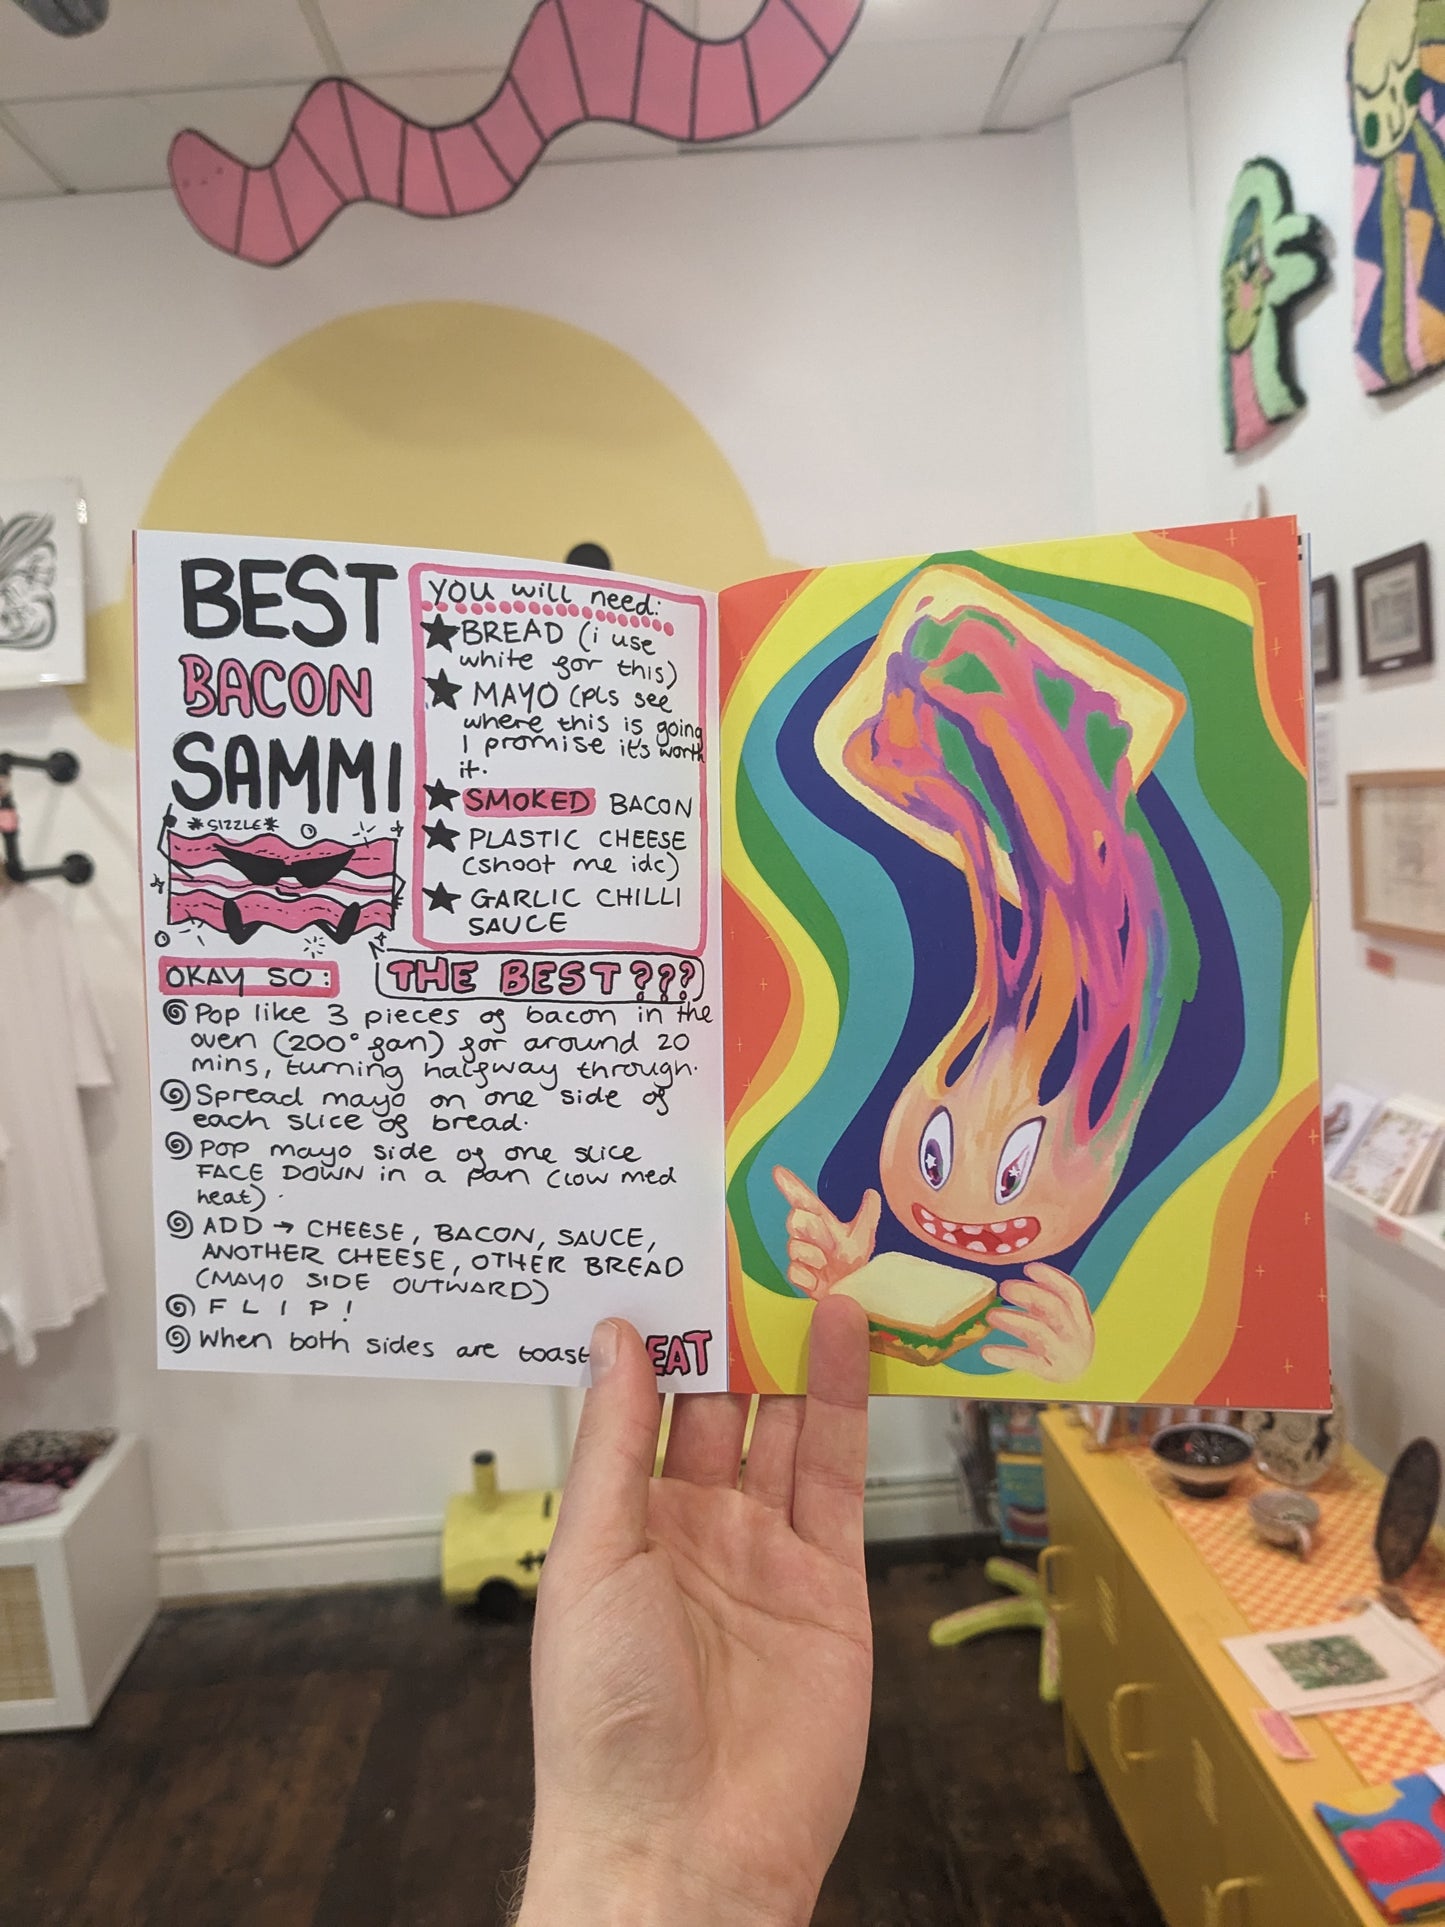 BEST
BACON
SAMMI
*SIZZLE*
you will need:
BREAD (i use
white for this)
MAYO (pls see
where this is going
I promise it's worth
it.
SMOKED BACON
PLASTIC CHEESE
(shoot me idc)
GARLIC CHILLI
SAUCE
THE BEST???
OKAY SO:
Pop like 3 pieces of bacon in the
oven (200° fan) for around 20
mins, turning halfway through.
Spread mayo on one side of
each slice of bread.
POP mayo side of one slice
FACE DOWN in a pan (low med
heat).
ADD → CHEESE, BACON, SAUCE,
ANOTHER CHEESE, OTHER BREAD
(MAYO SIDE OUTWARD)
FLIP!
When both sides are toast
EAT